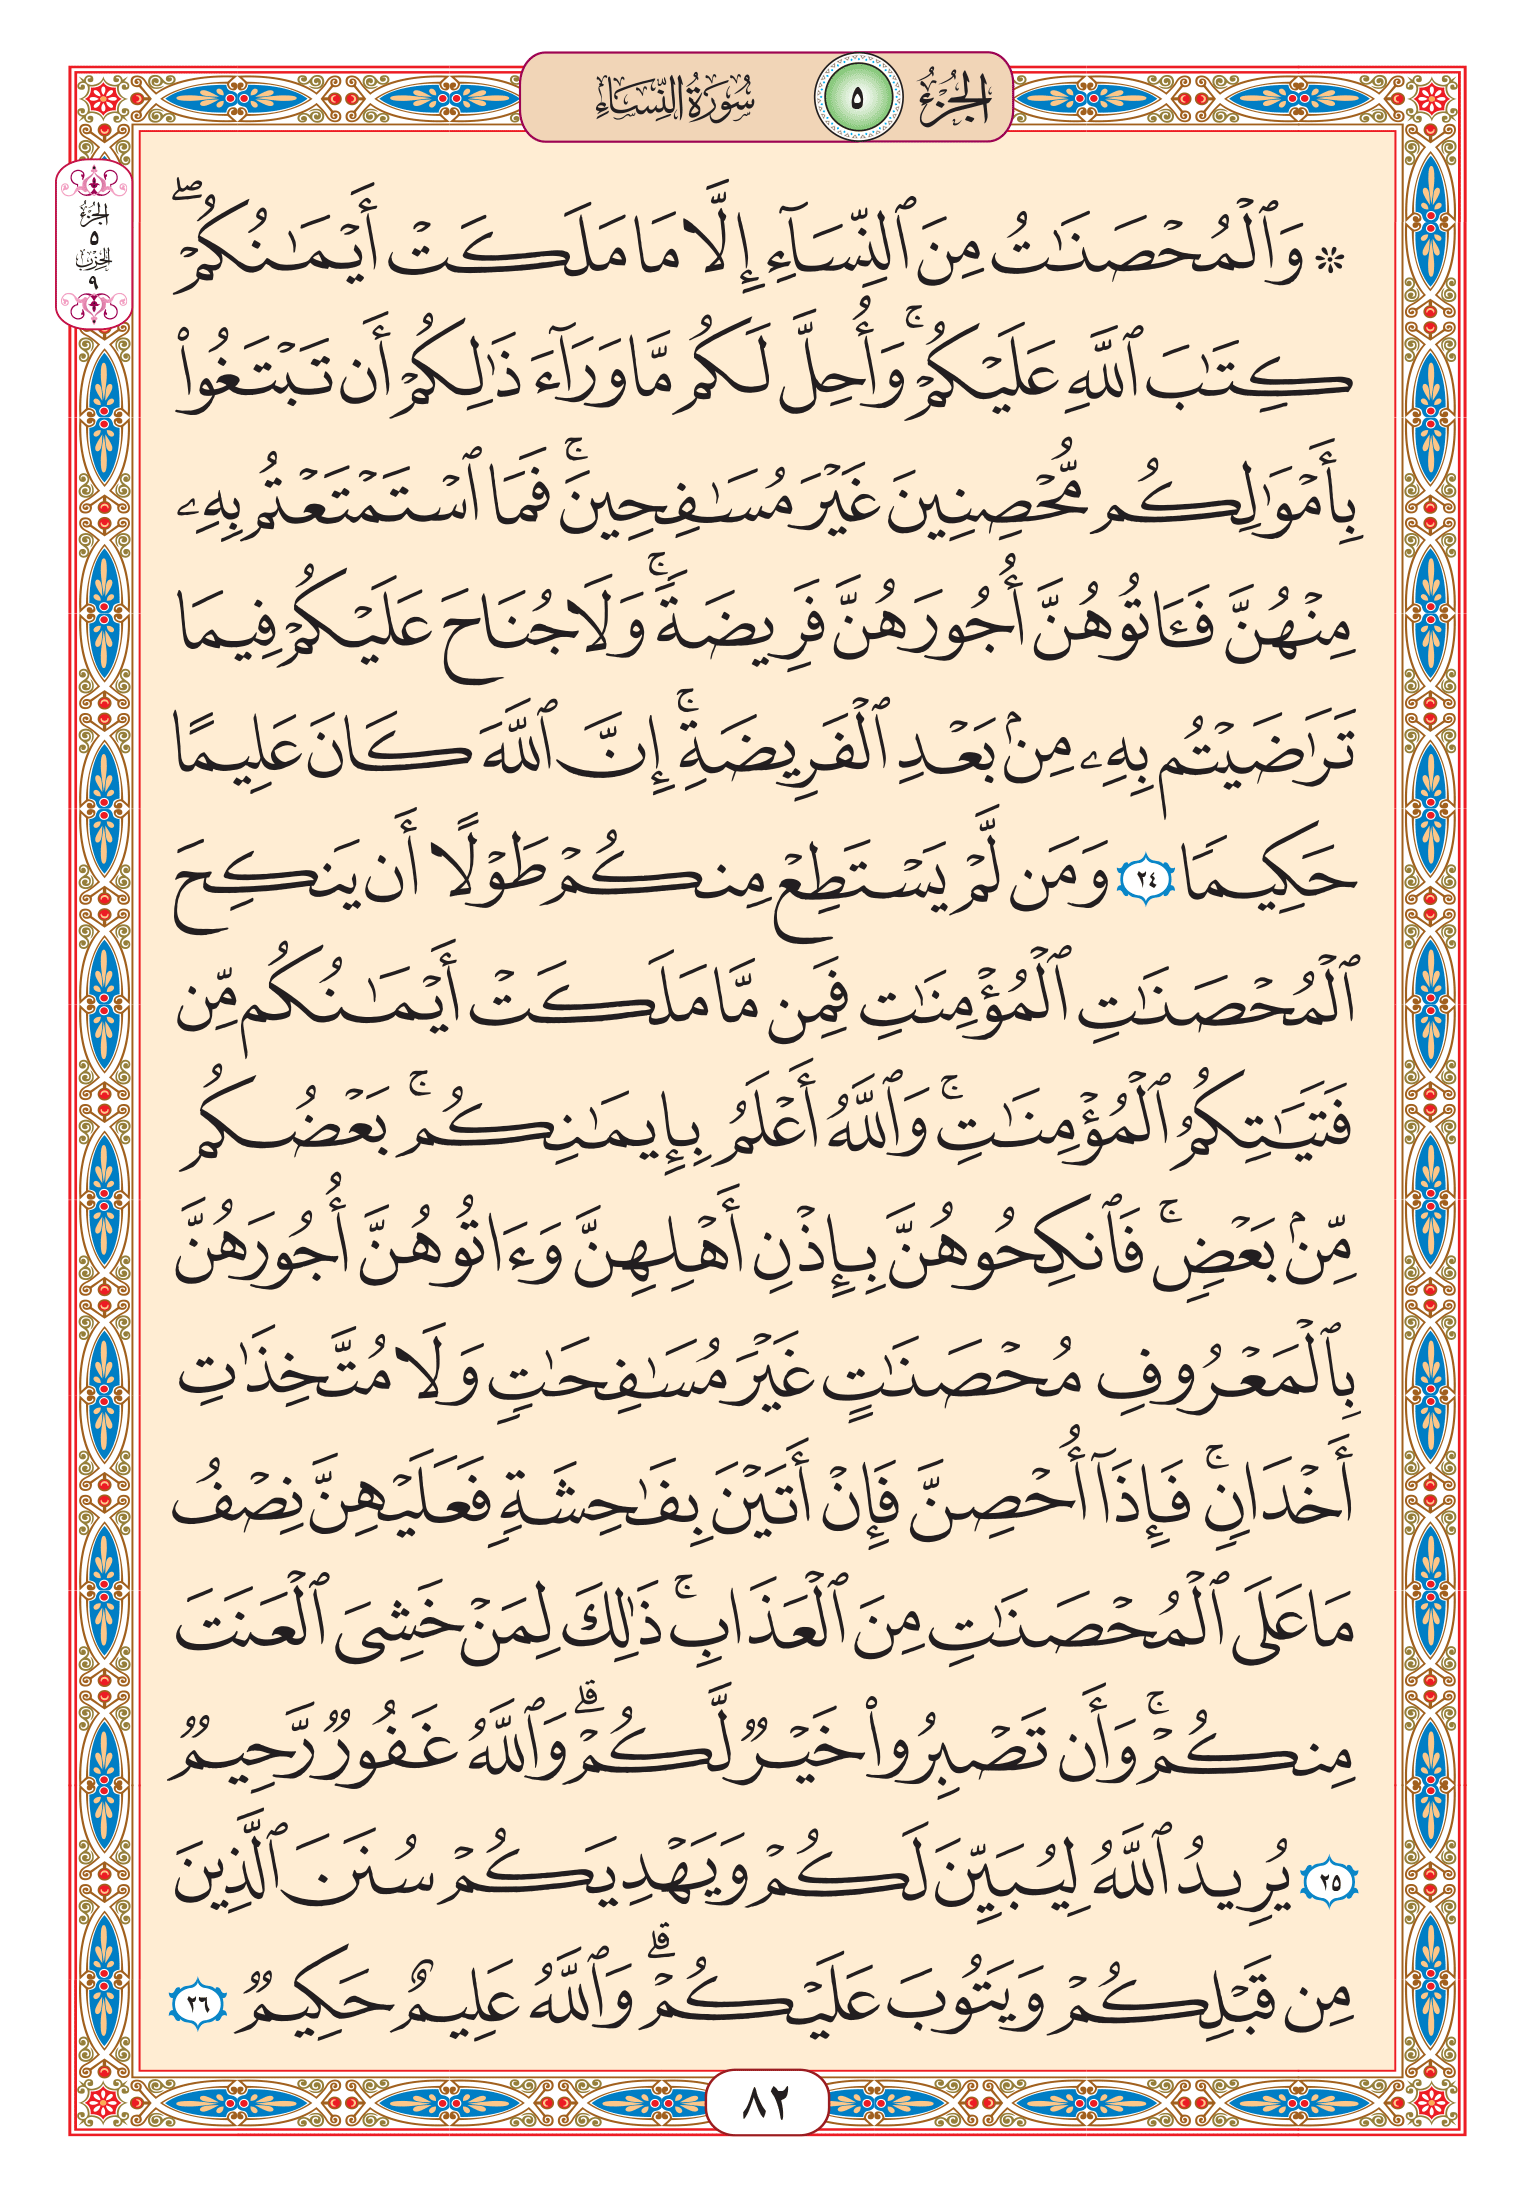 الجزء ٥ سورة النساء
الجزء
٥
الحزب
٩
۞ وَٱلْمُحْصَنَٰتُ مِنَ ٱلنِّسَآءِ إِلَّا مَا مَلَكَتْ أَيْمَٰنُكُمْ ۖ
كِتَٰبَ ٱللَّهِ عَلَيْكُمْ ۚ وَأُحِلَّ لَكُم مَّا وَرَآءَ ذَٰلِكُمْ أَن تَبْتَغُوا۟
بِأَمْوَٰلِكُم مُّحْصِنِينَ غَيْرَ مُسَٰفِحِينَ ۚ فَمَا ٱسْتَمْتَعْتُم بِهِۦ
مِنْهُنَّ فَـَٔاتُوهُنَّ أُجُورَهُنَّ فَرِيضَةً ۚ وَلَا جُنَاحَ عَلَيْكُمْ فِيمَا
تَرَٰضَيْتُم بِهِۦ مِنۢ بَعْدِ ٱلْفَرِيضَةِ ۚ إِنَّ ٱللَّهَ كَانَ عَلِيمًا
حَكِيمًا ٢٤ وَمَن لَّمْ يَسْتَطِعْ مِنكُمْ طَوْلًا أَن يَنكِحَ
ٱلْمُحْصَنَٰتِ ٱلْمُؤْمِنَٰتِ فَمِن مَّا مَلَكَتْ أَيْمَٰنُكُم مِّن
فَتَيَٰتِكُمُ ٱلْمُؤْمِنَٰتِ ۚ وَٱللَّهُ أَعْلَمُ بِإِيمَٰنِكُم ۚ بَعْضُكُم
مِّنۢ بَعْضٍ ۚ فَٱنكِحُوهُنَّ بِإِذْنِ أَهْلِهِنَّ وَءَاتُوهُنَّ أُجُورَهُنَّ
بِٱلْمَعْرُوفِ مُحْصَنَٰتٍ غَيْرَ مُسَٰفِحَٰتٍ وَلَا مُتَّخِذَٰتِ
أَخْدَانٍ ۚ فَإِذَآ أُحْصِنَّ فَإِنْ أَتَيْنَ بِفَٰحِشَةٍ فَعَلَيْهِنَّ نِصْفُ
مَا عَلَى ٱلْمُحْصَنَٰتِ مِنَ ٱلْعَذَابِ ۚ ذَٰلِكَ لِمَنْ خَشِىَ ٱلْعَنَتَ
مِنكُمْ ۚ وَأَن تَصْبِرُوا۟ خَيْرٌ لَّكُمْ ۗ وَٱللَّهُ غَفُورٌ رَّحِيمٌ
٢٥ يُرِيدُ ٱللَّهُ لِيُبَيِّنَ لَكُمْ وَيَهْدِيَكُمْ سُنَنَ ٱلَّذِينَ
مِن قَبْلِكُمْ وَيَتُوبَ عَلَيْكُمْ ۗ وَٱللَّهُ عَلِيمٌ حَكِيمٌ ٢٦
٨٢